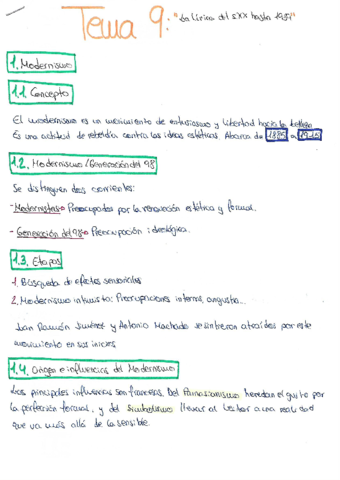 Tema 9: "La lírica del sXX hasta 1939"
1. Modernismo
1.1. Concepto
El modernismo es un movimiento de entusiasmo y libertad hacia la belleza
Es una actitud de rebeldía contra las ideas estéticas. Abarca de 1885 a 1915
1.2. Modernismo / Generación del 98
Se distinguen dos corrientes:
- Modernistas → Preocupados por la renovación estética y formal.
- Generación del 98 → Preocupación ideológica.
1.3. Etapas
1. Búsqueda de efectos sensoriales
2. Modernismo intimista: Preocupaciones internas, angustia...
Juan Ramón Jiménez y Antonio Machado se sintieron atraídos por este
movimiento en sus inicios
1.4. Origen e influencias del Modernismo
Las principales influencias son francesas. Del Parnasianismo heredan el gusto por
la perfección formal, y del simbolismo llevar al lector a una realidad
que va más allá de la sensible.